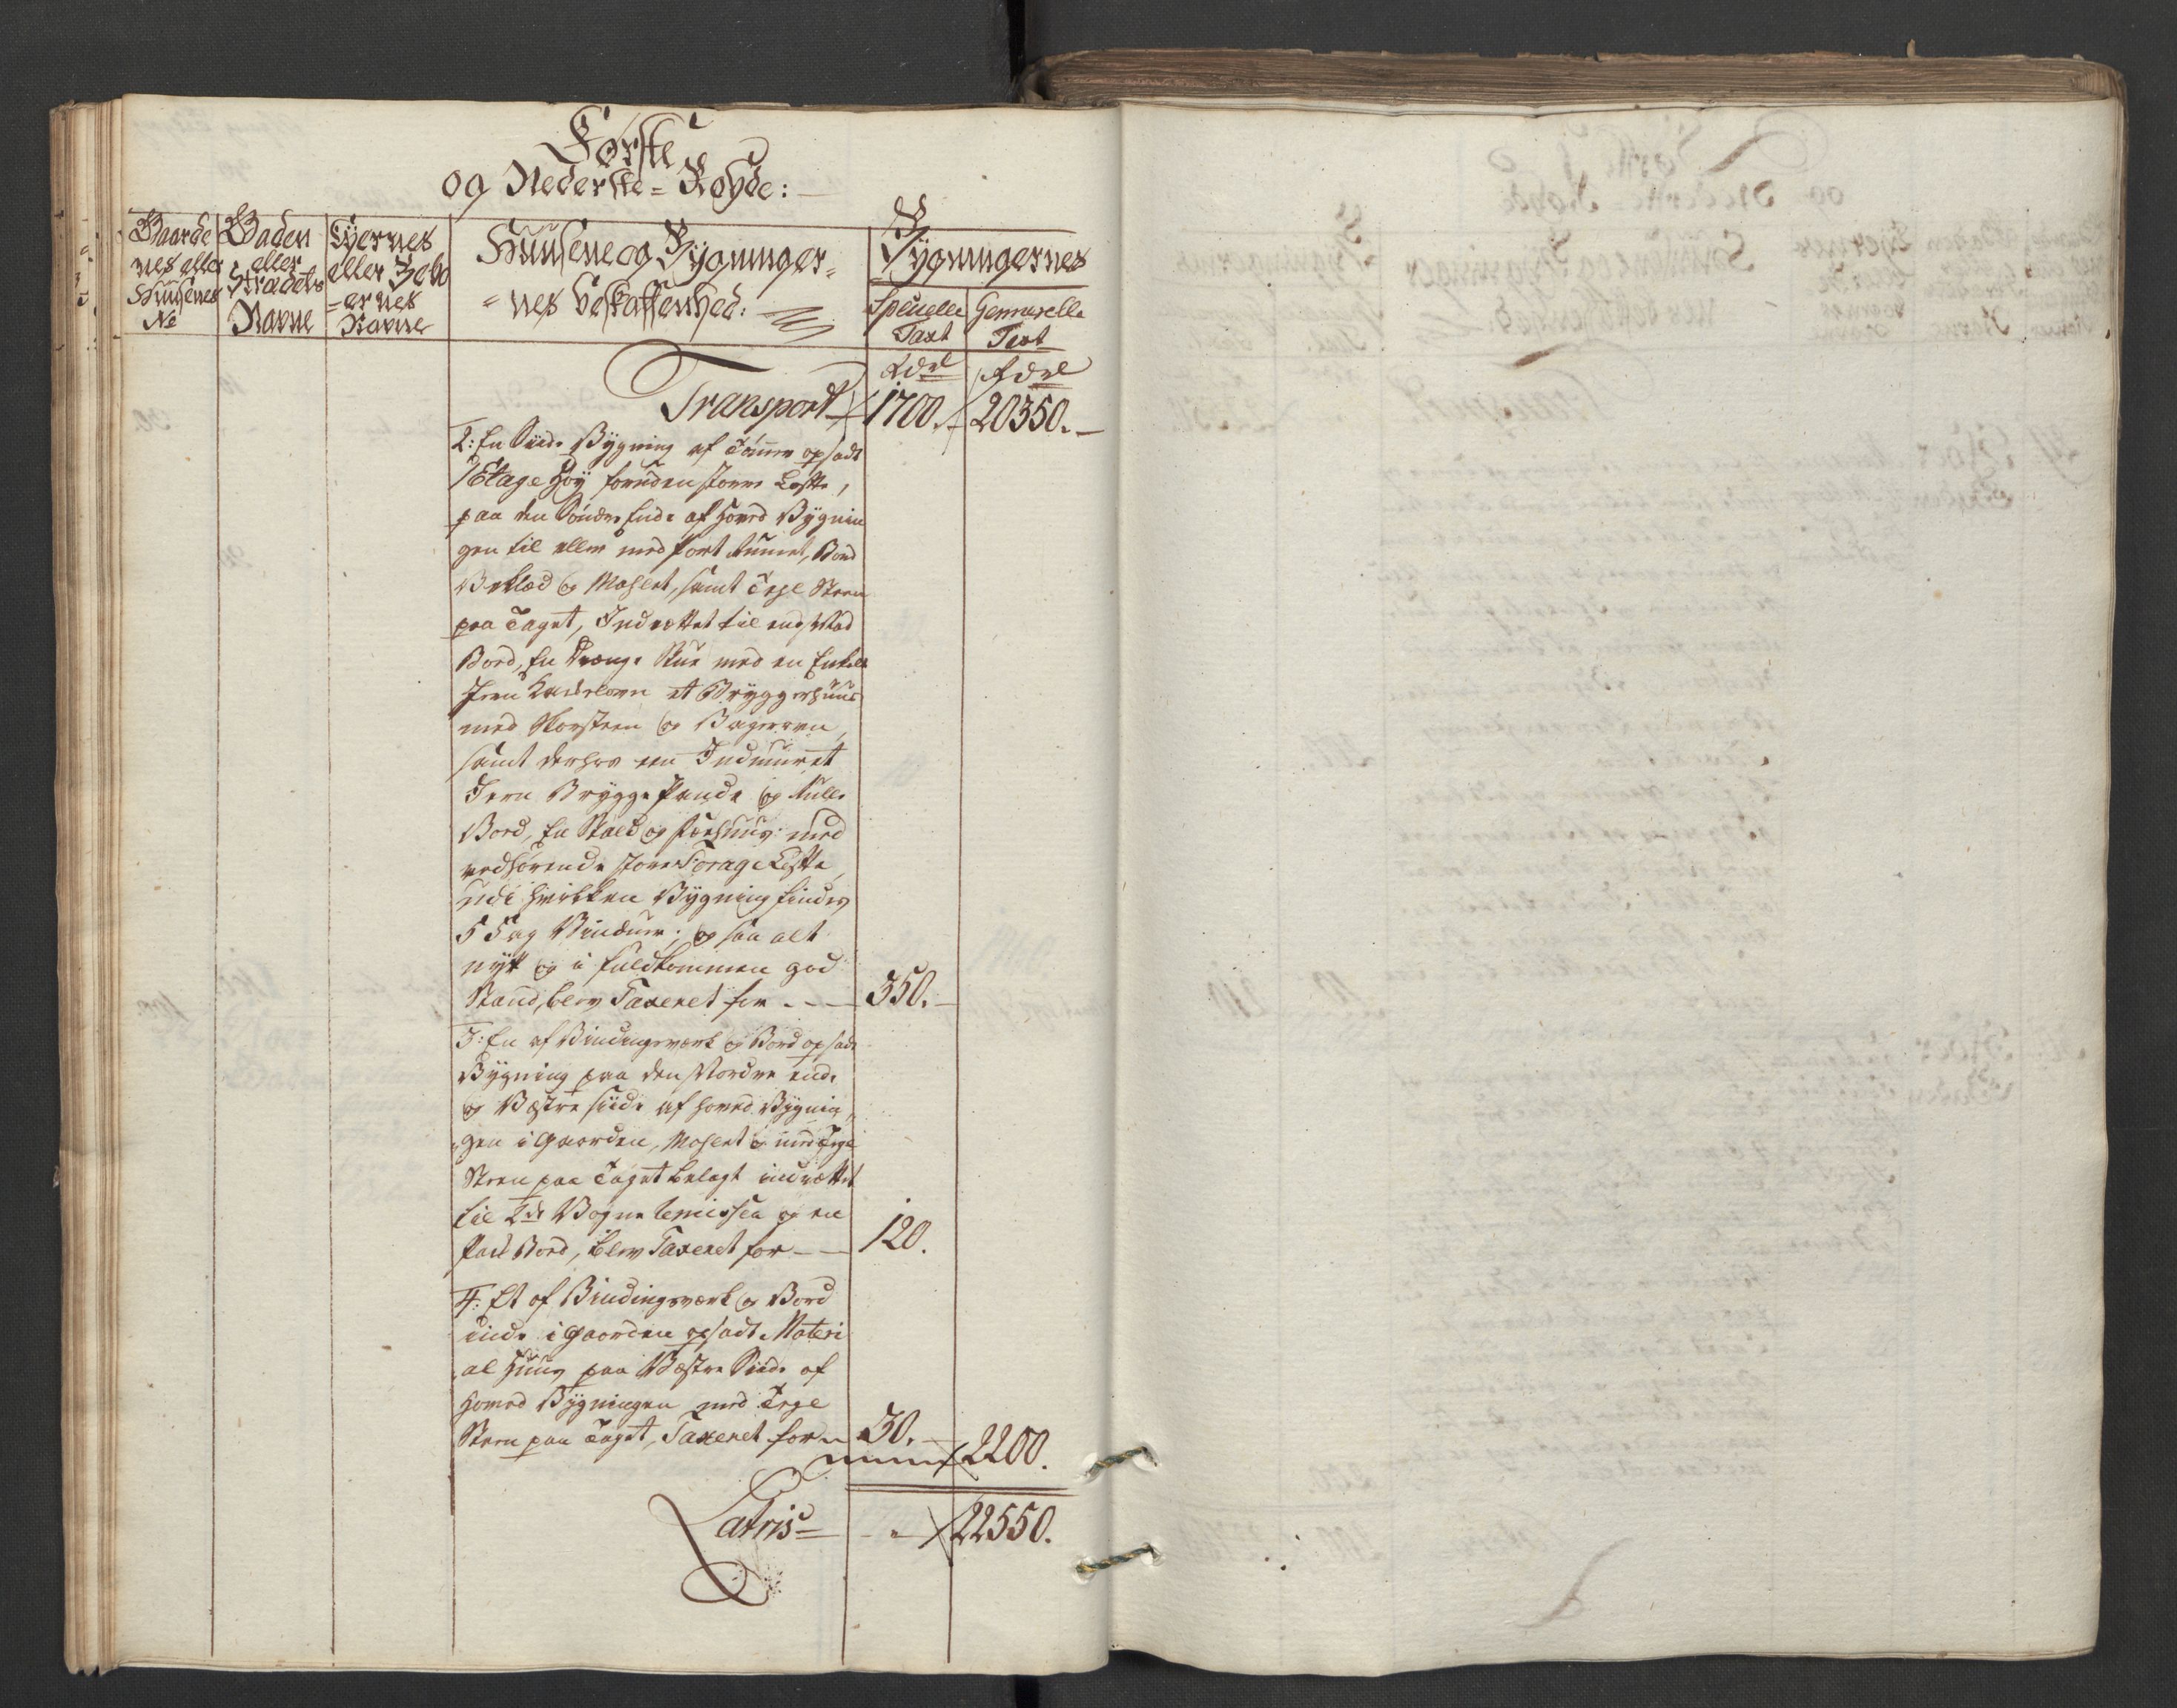 Første
og Nederste = Røyde:
Gaarde
nes eller
Huusenes
No
Gaden
eller
Strædets
Navne
Eyernes
eller Bebo
= ernes
Navne
Huusene og Bygninger =
= nes beskaffenhed:
Bygningernes
Specielle
Taxt
Gennerelle
Taxt
Rdel
Rdel
Transport 1700. 20350.
2: En Siide Bygning af Tømmer opsadt
1 Etage Høy foruden store Lofte,
paa den Søndre Ende af Hoved Bygnin
gen til eller med fort Muuret, Bord
Beklæd og Mahlet, samt Tegl Steen
paa Taget, Indrettet til en Vad
Bord, En Drenge Stue med en Enkelt
Jern Kackelovn et Bryggerhuus
med Skorsteen og Bagerovn,
samt derhos een Indmuuret
Jern Brygge Pande og Rulle
Bord, En Stald og Fæehuus med
vedhørende store Forage Lofte,
udi hvilken Bygning findes
5 Fag Vinduer; og saa alt
nyt og i fuldkommen god
Stand, blev Taxeret for - - - 350.
3: En af Bindingsværk og Bord opsadt
Bygning paa den Nordre Ende
og Væstre siide af Hoved Bygnin,
gen i Gaarden, Mahlet og med Tegl
Steen paa Taget belagt indrættet
til 2de Vogne Remisser og en
Vad Bord, blev Taxeret for - - 120.
4: Et af Bindingsværk og Bord
inde i Gaarden opsadt Materi
al Huus paa Væstre Siide af
Hoved Bygningen med Tegl
Steen paa Taget, Taxeret for 30.
2200.
Latris = - - 22550.